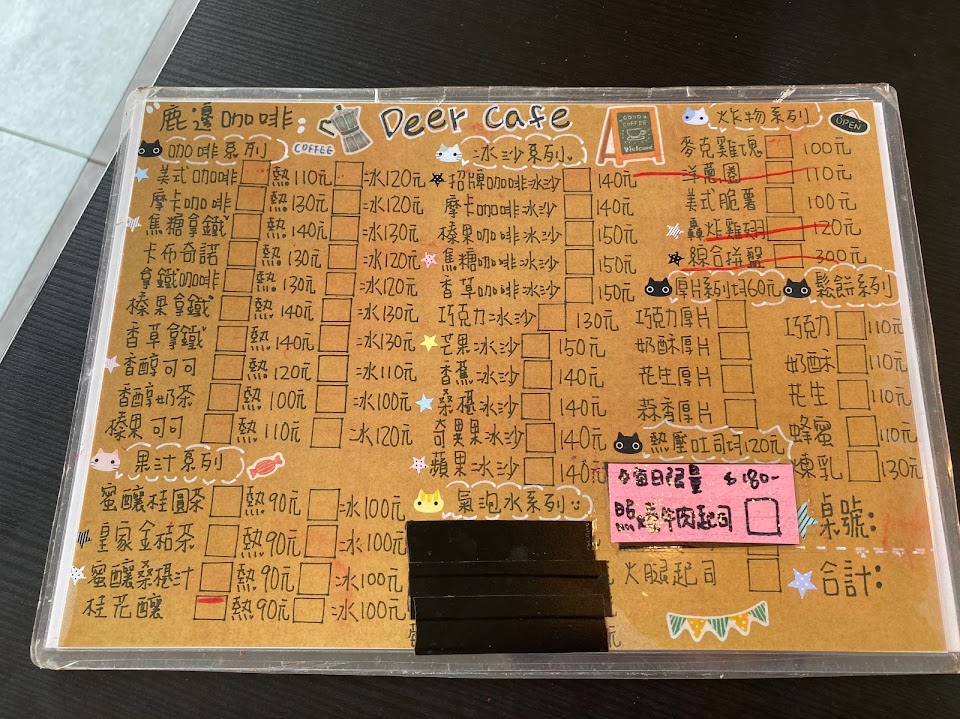 鹿邊咖啡:
Deer Cafe
COFFEE
GOOD COFFEE Welcome
OPEN
咖啡系列
美式咖啡 熱110元 冰120元
摩卡咖啡 熱130元 冰120元
焦糖拿鐵 熱140元 冰130元
卡布奇諾 熱130元 冰120元
拿鐵咖啡 熱130元 冰120元
榛果拿鐵 熱140元 冰130元
香草拿鐵 熱140元 冰130元
香醇可可 熱120元 冰110元
香醇奶茶 熱100元 冰100元
榛果可可 熱110元 冰120元
果汁系列
蜜釀桂圓茶 熱90元 冰100元
皇家金桔茶 熱90元 冰100元
蜜釀桑椹汁 熱90元 冰100元
桂花釀 熱90元 冰100元
冰沙系列
招牌咖啡冰沙 140元
摩卡咖啡冰沙 140元
榛果咖啡冰沙 150元
焦糖咖啡冰沙 150元
香草咖啡冰沙 150元
巧克力冰沙 130元
芒果冰沙 150元
香蕉冰沙 140元
桑椹冰沙 140元
奇異果冰沙 140元
蘋果冰沙 140元
氣泡水系列
炸物系列
麥克雞塊 100元
洋蔥圈 110元
美式脆薯 100元
轟炸雞翅 120元
綜合拼盤 300元
厚片系列均60元
巧克力厚片
奶酥厚片
花生厚片
蒜香厚片
鬆餅系列
巧克力 110元
奶酥 110元
花生 110元
蜂蜜 110元
煉乳 130元
熱壓吐司均120元
每日限量 $180-
牛肉起司
火腿起司
桌號:
合計: